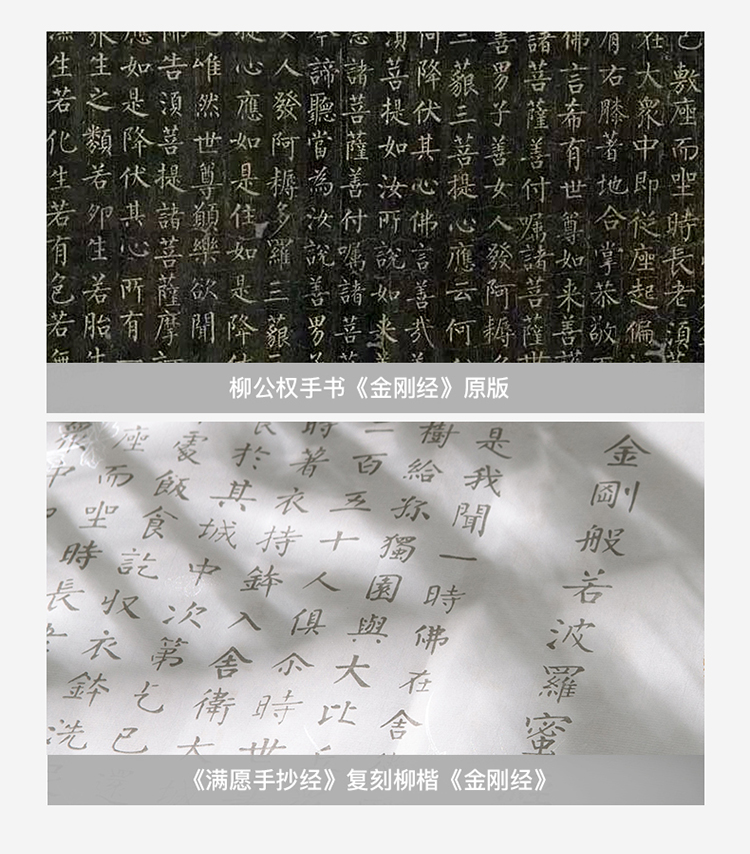 已敷座而坐時長老須
在大衆中即從座起偏
肩右膝著地合掌恭敬
佛言希有世尊如来善護
諸菩薩善付嘱諸菩薩世
善男子善女人發阿耨多
三藐三菩提心應云何
何降伏其心佛言善哉善
須菩提如汝所說如来善
念諸菩薩善付嘱諸菩薩
諦聽當為汝說善男子
女人發阿耨多羅三藐三
提心應如是住如是降伏
唯然世尊願樂欲聞
佛告須菩提諸菩薩摩訶
應如是降伏其心所有一
衆生之類若卵生若胎生
濕生若化生若有色若無
柳公权手书《金刚经》原版
金剛般若波羅蜜
是我聞一時佛在舍
樹給孤獨園與大比
二百五十人俱尒時世
時著衣持鉢入舍衛大
於其城中次第乞已
處飯食訖收衣鉢洗
座而坐時長
衆中
《满愿手抄经》复刻柳楷《金刚经》